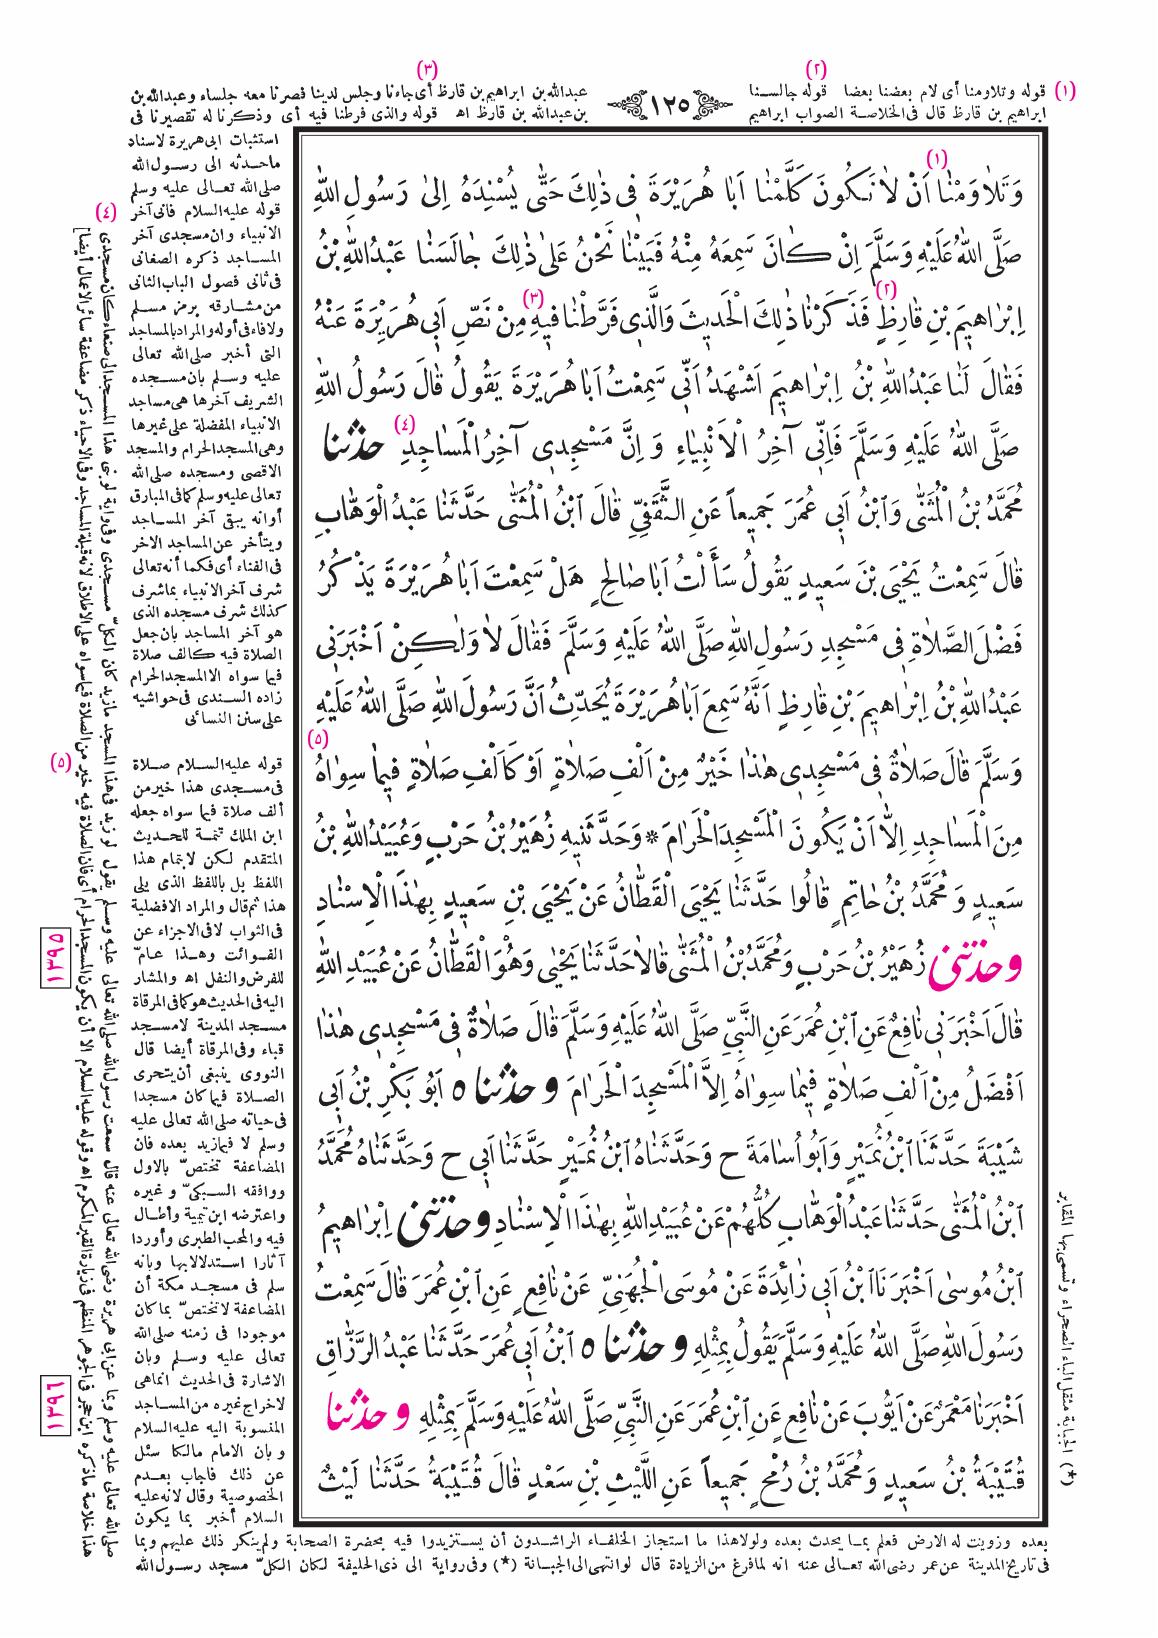 (١) قوله وتلاومنا أى لام بعضنا بعضا (٢) قوله جالسنا
ابراهيم بن قارظ قال فى الخلاصة الصواب ابراهيم
١٢٥
(٣) عبدالله بن ابراهيم بن قارظ أى جاءنا وجلس لدينا فصرنا معه جلساء وعبدالله بن
بن عبدالله بن قارظ اه قوله والذى فرطنا فيه أى وذكرنا له تقصيرنا فى
وَتَلَاوَمْنَا اَنْ لَا نَكُونَ كَلَّمْنَا اَبَا هُرَيْرَةَ فِى ذٰلِكَ حَتّٰى يُسْنِدَهُ اِلىٰ رَسُولِ اللهِ (١)
صَلَّى اللهُ عَلَيْهِ وَسَلَّمَ اِنْ كَانَ سَمِعَهُ مِنْهُ فَبَيْنَا نَحْنُ عَلىٰ ذٰلِكَ جَالَسَنَا عَبْدُ اللهِ بْنُ
اِبْرَاهِيمَ بْنِ قَارِظٍ (٢) فَذَكَرْنَا ذٰلِكَ الْحَدِيثَ وَالَّذِى فَرَّطْنَا فِيهِ (٣) مِنْ نَصِّ اَبِى هُرَيْرَةَ عَنْهُ
فَقَالَ لَنَا عَبْدُ اللهِ بْنُ اِبْرَاهِيمَ اَشْهَدُ اَنِّى سَمِعْتُ اَبَا هُرَيْرَةَ يَقُولُ قَالَ رَسُولُ اللهِ
صَلَّى اللهُ عَلَيْهِ وَسَلَّمَ فَاِنِّى آخِرُ الْاَنْبِيَاءِ وَ اِنَّ مَسْجِدِى آخِرُ الْمَسَاجِدِ (٤) حدثنا
مُحَمَّدُ بْنُ الْمُثَنّٰى وَابْنُ اَبِى عُمَرَ جَمِيعاً عَنِ الثَّقَفِىِّ قَالَ ابْنُ الْمُثَنّٰى حَدَّثَنَا عَبْدُ الْوَهَّابِ
قَالَ سَمِعْتُ يَحْيَى بْنَ سَعِيدٍ يَقُولُ سَأَلْتُ اَبَا صَالِحٍ هَلْ سَمِعْتَ اَبَا هُرَيْرَةَ يَذْكُرُ
فَضْلَ الصَّلَاةِ فِى مَسْجِدِ رَسُولِ اللهِ صَلَّى اللهُ عَلَيْهِ وَسَلَّمَ فَقَالَ لَا وَلٰكِنْ اَخْبَرَنِى
عَبْدُ اللهِ بْنُ اِبْرَاهِيمَ بْنِ قَارِظٍ اَنَّهُ سَمِعَ اَبَا هُرَيْرَةَ يُحَدِّثُ اَنَّ رَسُولَ اللهِ صَلَّى اللهُ عَلَيْهِ
وَسَلَّمَ قَالَ صَلَاةٌ فِى مَسْجِدِى هٰذَا خَيْرٌ مِنْ اَلْفِ صَلَاةٍ اَوْ كَاَلْفِ صَلَاةٍ فِيمَا سِوَاهُ (٥)
مِنَ الْمَسَاجِدِ اِلَّا اَنْ يَكُونَ الْمَسْجِدَ الْحَرَامَ * وَحَدَّثَنِيهِ زُهَيْرُ بْنُ حَرْبٍ وَعُبَيْدُ اللهِ بْنُ
سَعِيدٍ وَ مُحَمَّدُ بْنُ حَاتِمٍ قَالُوا حَدَّثَنَا يَحْيَى الْقَطَّانُ عَنْ يَحْيَى بْنِ سَعِيدٍ بِهٰذَا الْاِسْنَادِ
وحدثنى زُهَيْرُ بْنُ حَرْبٍ وَمُحَمَّدُ بْنُ الْمُثَنّٰى قَالَا حَدَّثَنَا يَحْيٰى وَهُوَ الْقَطَّانُ عَنْ عُبَيْدِ اللهِ
قَالَ اَخْبَرَنِى نَافِعٌ عَنِ ابْنِ عُمَرَ عَنِ النَّبِىِّ صَلَّى اللهُ عَلَيْهِ وَسَلَّمَ قَالَ صَلَاةٌ فِى مَسْجِدِى هٰذَا
اَفْضَلُ مِنْ اَلْفِ صَلَاةٍ فِيمَا سِوَاهُ اِلَّا الْمَسْجِدَ الْحَرَامَ وحدثنا ٥ اَبُو بَكْرِ بْنُ اَبِى
شَيْبَةَ حَدَّثَنَا ابْنُ نُمَيْرٍ وَاَبُو اُسَامَةَ ح وَحَدَّثَنَاهُ ابْنُ نُمَيْرٍ حَدَّثَنَا اَبِى ح وَحَدَّثَنَاهُ مُحَمَّدُ
ابْنُ الْمُثَنّٰى حَدَّثَنَا عَبْدُ الْوَهَّابِ كُلُّهُمْ عَنْ عُبَيْدِ اللهِ بِهٰذَا الْاِسْنَادِ وحدثنى اِبْرَاهِيمُ
ابْنُ مُوسٰى اَخْبَرَنَا ابْنُ اَبِى زَائِدَةَ عَنْ مُوسَى الْجُهَنِىِّ عَنْ نَافِعٍ عَنِ ابْنِ عُمَرَ قَالَ سَمِعْتُ
رَسُولَ اللهِ صَلَّى اللهُ عَلَيْهِ وَسَلَّمَ يَقُولُ بِمِثْلِهِ وحدثنا ٥ ابْنُ اَبِى عُمَرَ حَدَّثَنَا عَبْدُ الرَّزَّاقِ
اَخْبَرَنَا مَعْمَرٌ عَنْ اَيُّوبَ عَنْ نَافِعٍ عَنِ ابْنِ عُمَرَ عَنِ النَّبِىِّ صَلَّى اللهُ عَلَيْهِ وَسَلَّمَ بِمِثْلِهِ وحدثنا
قُتَيْبَةُ بْنُ سَعِيدٍ وَ مُحَمَّدُ بْنُ رُمْحٍ جَمِيعاً عَنِ اللَّيْثِ بْنِ سَعْدٍ قَالَ قُتَيْبَةُ حَدَّثَنَا لَيْثٌ
استثبات ابى هريرة لاسناد
ماحدثه الى رسول الله
صلى الله تعالى عليه وسلم
(٤) قوله عليه السلام فانى آخر
الانبياء وان مسجدى آخر
المساجد ذكره الصغانى
فى ثانى فصول الباب الثانى
من مشارقه برمز مسلم
ولافاء فى أوله والمراد بالمساجد
التى أخبر صلى الله تعالى
عليه وسلم بان مسجده
الشريف آخرها هى مساجد
الانبياء المفضلة على غيرها
وهى المسجد الحرام والمسجد
الاقصى ومسجده صلى الله
تعالى عليه وسلم كما فى المبارق
أو انه يبقى آخر المساجد
ويتأخر عن المساجد الاخر
فى الفناء أى فكما أنه تعالى
شرف آخر الانبياء بماشرف
كذلك شرف مسجده الذى
هو آخر المساجد بان جعل
الصلاة فيه كالف صلاة
فيما سواه الا المسجد الحرام
زاده السندى فى حواشيه
على سنن النسائى
(٥) قوله عليه السلام صلاة
فى مسجدى هذا خير من
ألف صلاة فيما سواه جعله
ابن الملك تتمة للحديث
المتقدم لكن لا بتمام هذا
اللفظ بل باللفظ الذى يلى
هذا ثم قال و المراد الافضلية
فى الثواب لا فى الاجزاء عن
الفوائت وهذا عام
للفرض والنفل اه والمشار
اليه فى الحديث هو كما فى المرقاة
مسجد المدينة لا مسجد
قباء وفى المرقاة أيضا قال
النووى ينبغى أن يتحرى
الصلاة فيما كان مسجدا
فى حياته صلى الله تعالى عليه
وسلم لا فيما زيد بعده فان
المضاعفة تختص بالاول
ووافقه السبكى و غيره
واعترضه ابن تيمية وأطال
فيه والمحب الطبرى وأوردا
آثارا استدلالا بها وبانه
سلم فى مسجد مكة أن
المضاعفة لا تختص بما كان
موجودا فى زمنه صلى الله
تعالى عليه وسلم وبان
الاشارة فى الحديث انما هى
لاخراج غيره من المساجد
المنسوبة اليه عليه السلام
و بان الامام مالكا سئل
عن ذلك فاجاب بعدم
الخصوصية وقال لانه عليه
السلام أخبر بما يكون
بعده وزويت له الارض فعلم بما يحدث بعده ولولا هذا ما استجاز الخلفاء الراشدون أن يستزيدوا فيه بحضرة الصحابة ولم ينكر ذلك عليهم وبما
فى تاريخ المدينة عن عمر رضى الله تعالى عنه انه لما فرغ من الزيادة قال لو انتهى الى الجبانة (*) وفى رواية الى ذى الحليفة لكان الكل مسجد رسول الله
صلى الله تعالى عليه وسلم وبما عن ابى هريرة رضى الله تعالى عنه قال سمعت رسول الله صلى الله تعالى عليه وسلم يقول لو زيد فى هذا المسجد مازيد كان الكل مسجدى وفى رواية لو بنى هذا المسجد الى صنعاء كان مسجدى
هذا خلاصة ماذكره ابن حجر فى الجوهر المنظم فى زيارة القبر المكرم اه وقوله عليه السلام الا أن يكون المسجد الحرام أى فان الصلاة فيه خير من الصلاة فيما سواه على الاطلاق لانه قبلة المساجد وفى الاحياء ذكر مضاعفة سائر الاعمال أيضا]
(*) الجبانة مثقل الباء الصحراء وتسمى بها المقابر
١٣٩٥
١٣٩٦